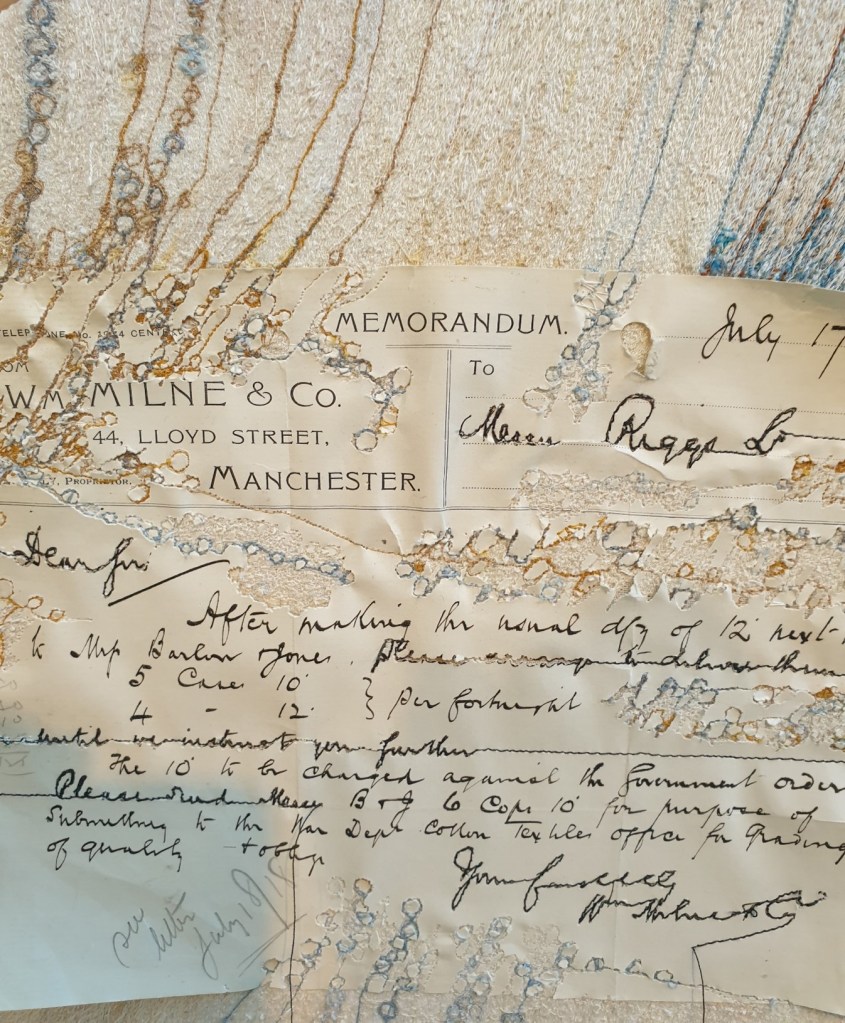 MEMORANDUM.
July 17
TELEP ONE No. 1954 CENTR
OM
To
WM MILNE & Co.
44, LLOYD STREET,
Messrs Riggs Ld
PROPRIETOR.
MANCHESTER.
Dear Sir
After making the usual dfy of 12 next
to Mrp Barlow & Jones, please arrange to deliver them
5 Case 10
4 - 12 } per fortnight
until we instruct you further
The 10 to be charged against the Government order
Please send Messrs B & J 6 Cops 10 for purpose of
Submitting to the War Dept Cotton Textiles office for Grading
of quality & oblige
Yours faithfully
Wm Milne & Co
see
letter
July 18/18